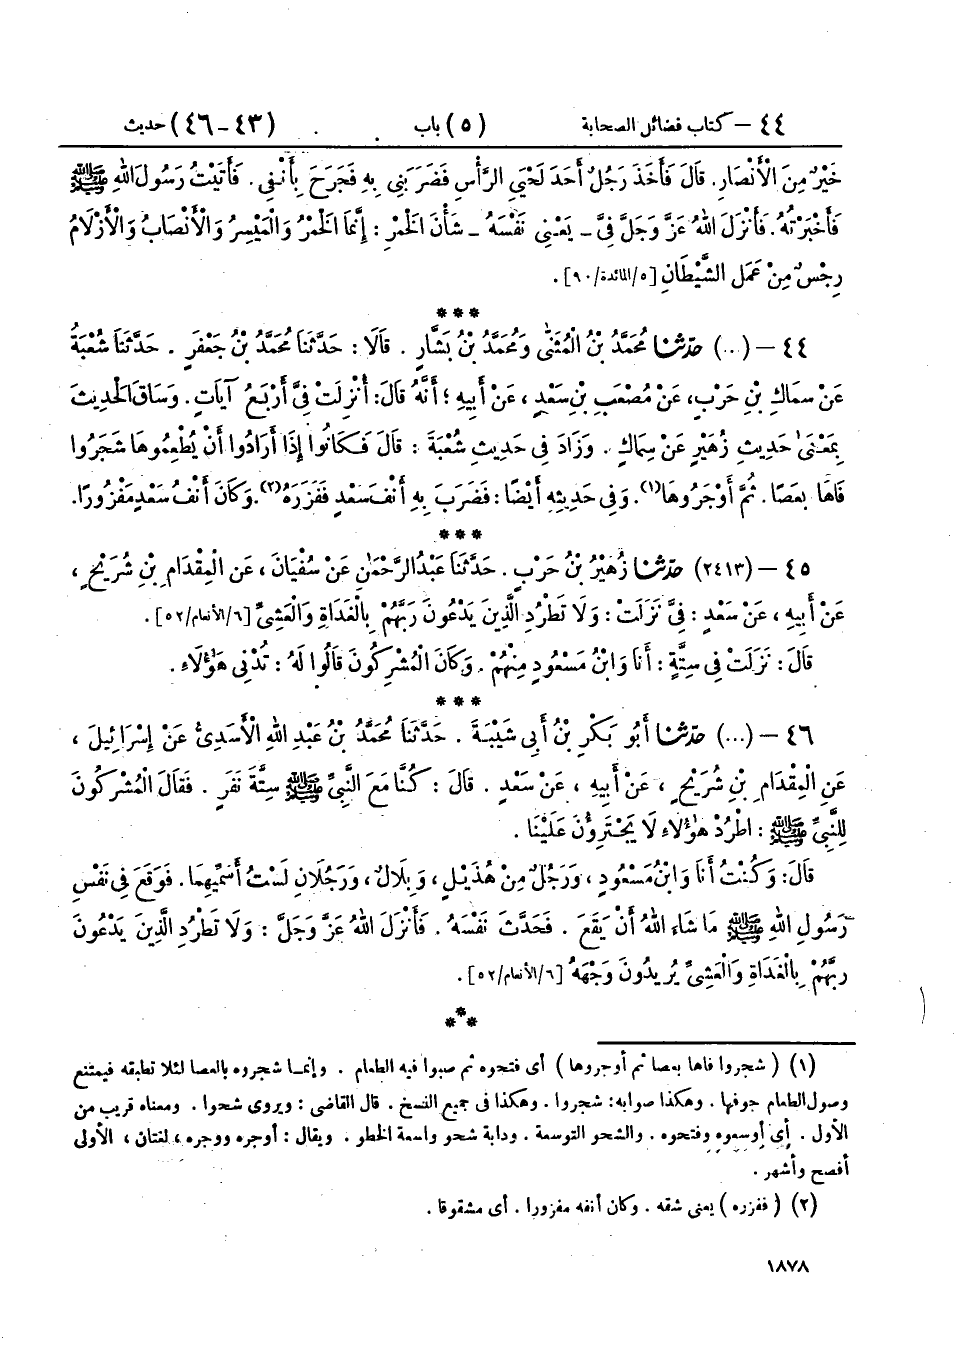 ٤٤ – كتاب فضائل الصحابة (٥) باب (٤٣–٤٦) حديث
خَيْرٌ مِنَ الْأَنْصَارِ. قَالَ فَأَخَذَ رَجُلٌ أَحَدَ لَحْيَيِ الرَّأْسِ فَضَرَبَنِي بِهِ فَجَرَحَ بِأَنْفِي. فَأَتَيْتُ رَسُولَ اللهِ ﷺ
فَأَخْبَرْتُهُ. فَأَنْزَلَ اللهُ عَزَّ وَجَلَّ فِيَّ – يَعْنِي نَفْسَهُ – شَأْنَ الْخَمْرِ : إِنَّمَا الْخَمْرُ وَالْمَيْسِرُ وَالْأَنْصَابُ وَالْأَزْلَامُ
رِجْسٌ مِنْ عَمَلِ الشَّيْطَانِ [٥/المائدة/٩٠].
***
٤٤ – (...) حدّثنا مُحَمَّدُ بْنُ الْمُثَنَّى وَمُحَمَّدُ بْنُ بَشَّارٍ . قَالَا : حَدَّثَنَا مُحَمَّدُ بْنُ جَعْفَرٍ . حَدَّثَنَا شُعْبَةُ
عَنْ سِمَاكِ بْنِ حَرْبٍ، عَنْ مُصْعَبِ بْنِ سَعْدٍ ، عَنْ أَبِيهِ ؛ أَنَّهُ قَالَ: أُنْزِلَتْ فِيَّ أَرْبَعُ آيَاتٍ. وَسَاقَ الْحَدِيثَ
بِمَعْنَى حَدِيثِ زُهَيْرٍ عَنْ سِمَاكٍ . وَزَادَ فِي حَدِيثِ شُعْبَةَ : قَالَ فَكَانُوا إِذَا أَرَادُوا أَنْ يُطْعِمُوهَا شَجَرُوا
فَاهَا بِعَصًا. ثُمَّ أَوْجَرُوهَا(١). وَفِي حَدِيثِهِ أَيْضًا : فَضَرَبَ بِهِ أَنْفَ سَعْدٍ فَفَزَرَهُ(٢). وَكَانَ أَنْفُ سَعْدٍ مَفْزُورًا.
***
٤٥ – (٢٤١٣) حدّثنا زُهَيْرُ بْنُ حَرْبٍ . حَدَّثَنَا عَبْدُ الرَّحْمَنِ عَنْ سُفْيَانَ ، عَنِ الْمِقْدَامِ بْنِ شُرَيْحٍ ،
عَنْ أَبِيهِ ، عَنْ سَعْدٍ : فِيَّ نَزَلَتْ : وَلَا تَطْرُدِ الَّذِينَ يَدْعُونَ رَبَّهُمْ بِالْغَدَاةِ وَالْعَشِيِّ [٦/الأنعام/٥٢].
قَالَ : نَزَلَتْ فِي سِتَّةٍ : أَنَا وَابْنُ مَسْعُودٍ مِنْهُمْ . وَكَانَ الْمُشْرِكُونَ قَالُوا لَهُ : تُدْنِي هَؤُلَاءِ .
***
٤٦ – (...) حدّثنا أَبُو بَكْرِ بْنُ أَبِي شَيْبَةَ . حَدَّثَنَا مُحَمَّدُ بْنُ عَبْدِ اللهِ الْأَسَدِيُّ عَنْ إِسْرَائِيلَ ،
عَنِ الْمِقْدَامِ بْنِ شُرَيْحٍ ، عَنْ أَبِيهِ ، عَنْ سَعْدٍ . قَالَ : كُنَّا مَعَ النَّبِيِّ ﷺ سِتَّةَ نَفَرٍ . فَقَالَ الْمُشْرِكُونَ
لِلنَّبِيِّ ﷺ : اطْرُدْ هَؤُلَاءِ لَا يَجْتَرِؤُنَ عَلَيْنَا .
قَالَ: وَكُنْتُ أَنَا وَابْنُ مَسْعُودٍ ، وَرَجُلٌ مِنْ هُذَيْلٍ ، وَبِلَالٌ ، وَرَجُلَانِ لَسْتُ أُسَمِّيهِمَا. فَوَقَعَ فِي نَفْسِ
رَسُولِ اللهِ ﷺ مَا شَاءَ اللهُ أَنْ يَقَعَ . فَحَدَّثَ نَفْسَهُ . فَأَنْزَلَ اللهُ عَزَّ وَجَلَّ : وَلَا تَطْرُدِ الَّذِينَ يَدْعُونَ
رَبَّهُمْ بِالْغَدَاةِ وَالْعَشِيِّ يُرِيدُونَ وَجْهَهُ [٦/الأنعام/٥٢].
***
(١) ( شجروا فاها بعصا ثم أوجروها ) أى فتحوه ثم صبوا فيه الطعام . وإنما شجروه بالعصا لئلا تطبقه فيمتنع
وصول الطعام جوفها . وهكذا صوابه: شجروا . وهكذا فى جميع النسخ . قال القاضى : ويروى شحوا . ومعناه قريب من
الأول . أى أوسعوه وفتحوه . والشحو التوسعة . ودابة شحو واسعة الخطو . ويقال : أوجره ووجره ، لغتان ، الأولى
أفصح وأشهر .
(٢) ( ففزره ) يعنى شقه . وكان أنفه مفزورا . أى مشقوقا .
١٨٧٨